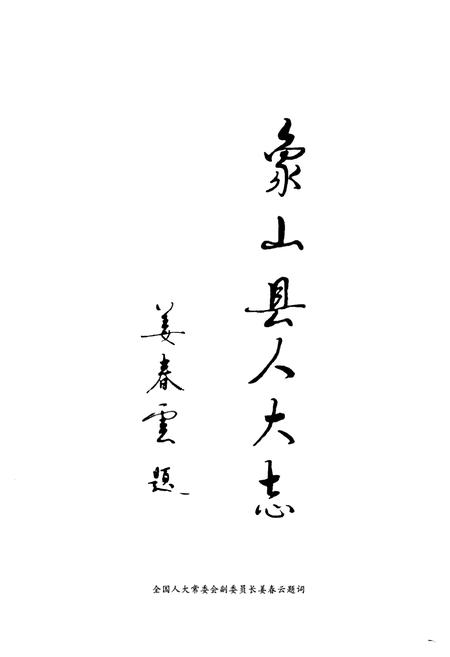 象山县人大志
姜春雲題
全国人大常委会副委员长姜春云题词